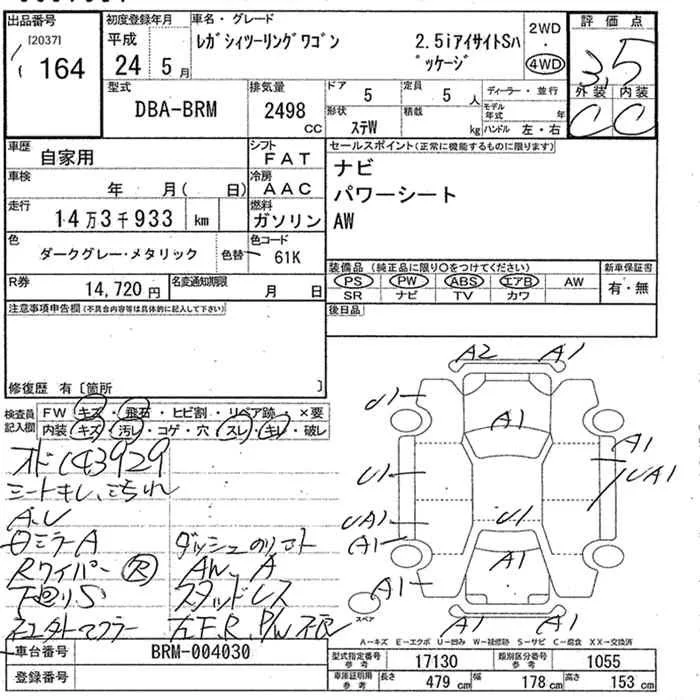 出品番号
[2037]
164
初度登録年月
平成
24年 5月
車名・グレード
レガシィツーリングワゴン 2.5iアイサイトSパッケージ
2WD
・
4WD
評価点
3.5
外装 内装
C C
型式
DBA-BRM
排気量
2498 cc
ドア 5
定員 5人
形状 ステW
積載 kg
ディーラー・並行
モデル年式 年
ハンドル 左・右
車歴 自家用
シフト FAT
車検 年 月( 日)
冷房 AAC
走行 14万3千933 km
燃料 ガソリン
色 ダークグレー・メタリック
色替
色コード 61K
R券 14,720円
名変通知期限 月 日
セールスポイント(正常に機能するものに限ります)
ナビ
パワーシート
AW
装備品(純正品に限り○をつけてください)
PS PW ABS エアB AW
SR ナビ TV カワ
新車保証書
有・無
後日品
注意事項申告欄(不具合内容等は具体的に記入して下さい)
修復歴 有[箇所 ]
検査員記入欄
FW キズ・飛石・ヒビ割・リペア跡・×要
内装 キズ・汚レ・コゲ・穴・スレ・キレ・破レ
オド143929
シートキレ、こすれ
A.U
ミラーA
Rワイパー Ⓡ
下廻りS
社外マフラー
AW A
スタッドレス
左F、R、P/W不良
A2 A1
U1
A1
U1
A1
UA1
UA1
U1
A1
A1
A1
スペア
A1 A1
A−キズ E−エクボ U−凹み W−補修跡 S−サビ C−腐食 XX−交換済
車台番号 BRM-004030
登録番号
型式指定番号 参考 17130
類別区分番号 参考 1055
車庫証明用 参考 長さ 479cm 幅 178cm 高さ 153cm